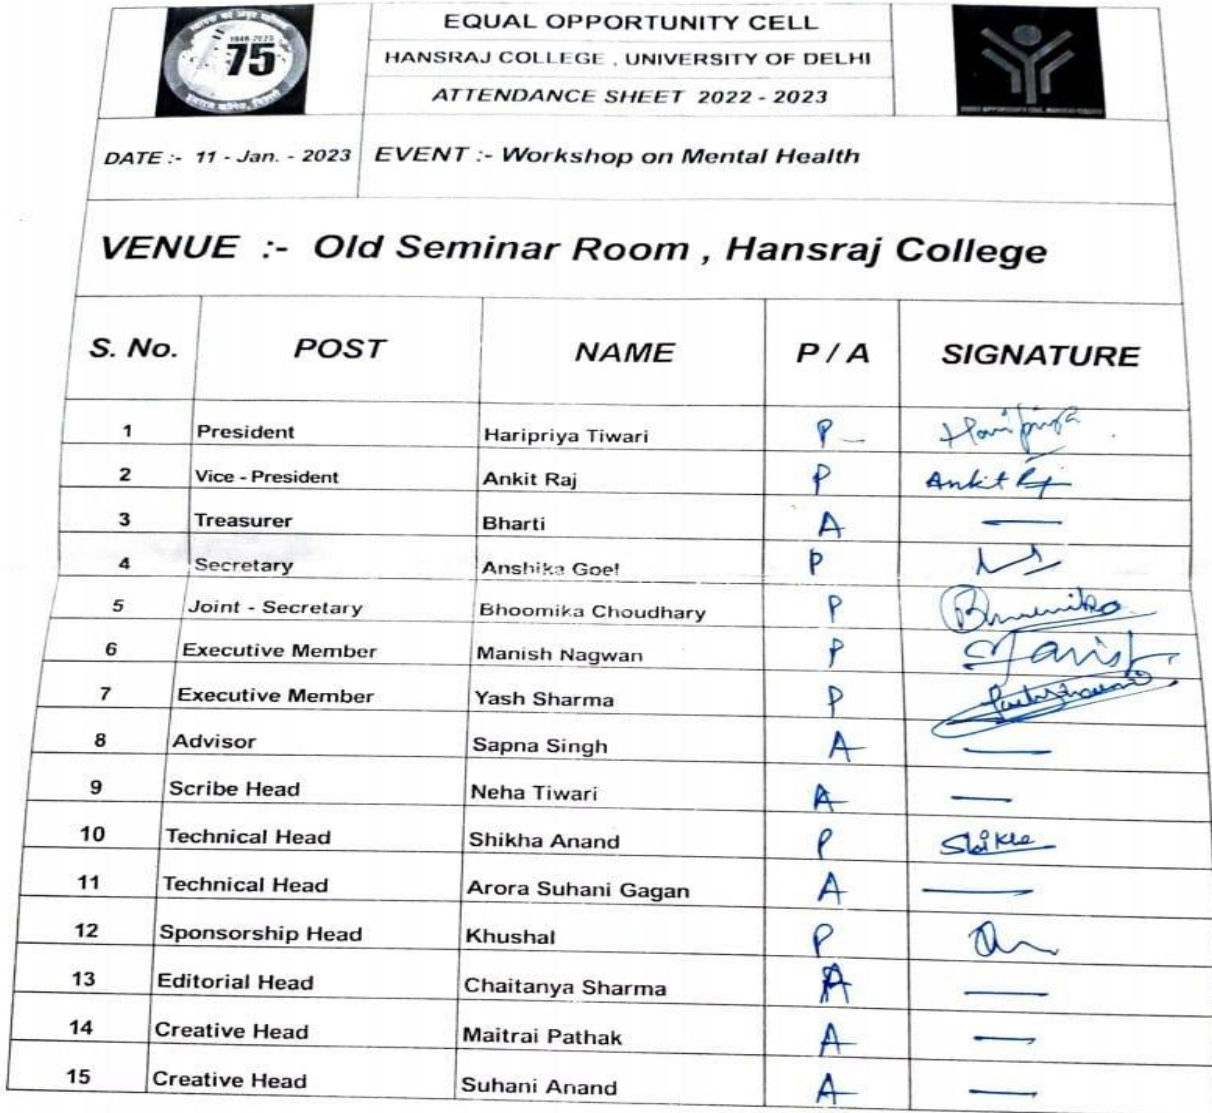 1948-2023
75
हंसराज कॉलेज, दिल्ली
EQUAL OPPORTUNITY CELL
HANSRAJ COLLEGE , UNIVERSITY OF DELHI
ATTENDANCE SHEET 2022 - 2023
DATE :- 11 - Jan. - 2023 EVENT :- Workshop on Mental Health
VENUE :- Old Seminar Room , Hansraj College
S. No. POST NAME P / A SIGNATURE
1 President Haripriya Tiwari P Haripriya
2 Vice - President Ankit Raj P Ankit Raj
3 Treasurer Bharti A —
4 Secretary Anshika Goel P
5 Joint - Secretary Bhoomika Choudhary P Bhoomika
6 Executive Member Manish Nagwan P Manish
7 Executive Member Yash Sharma P Yash Sharma
8 Advisor Sapna Singh A —
9 Scribe Head Neha Tiwari A —
10 Technical Head Shikha Anand P Shikha
11 Technical Head Arora Suhani Gagan A —
12 Sponsorship Head Khushal P
13 Editorial Head Chaitanya Sharma A —
14 Creative Head Maitrai Pathak A —
15 Creative Head Suhani Anand A —